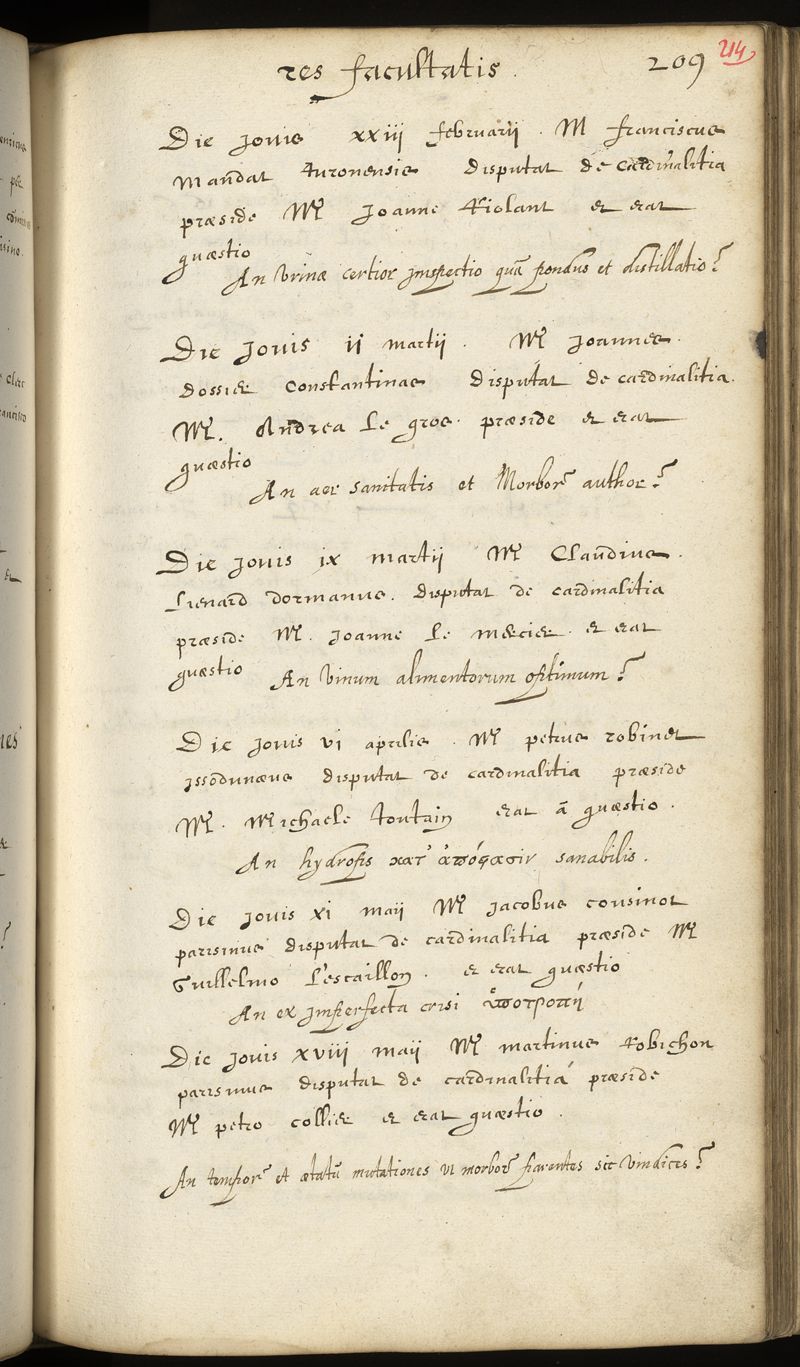 res facultatis. 209 214
Die Jovis xxiij februarij. M franciscus
Mandat turonensis disputat de cardinalitia
præside Mr Joanne Riolant et erat
quæstio
An Urinæ certior inspectio quā pondus et distillatio?
Die Jovis ij martij. Mr Joannes
dossier Constantinas disputat de cardinalitia.
Mr. Andrea Le gros. præside et erat
quæstio
An aer sanitatis et Morbor author?
Die Jovis ix martij Mr Claudius.
Lienard dormanus. disputat de cardinalitia
præside Mr. Joanne Le mercier. et erat
quæstio An Vinum alimentorum optimum?
Die Jovis vi aprilis. Mr petrus robinet
issodunæus disputat de cardinalitia præside
Mr. Michaele toutain erat ā quæstio.
An hydrops κατ' ἀπόφασιν sanabilis.
Die Jovis xi maij Mr Jacobus cousinot
parisinus disputat de cardinalitia præside Mr
Guillelmo L'escaillon. et erat quæstio
An ex imperfecta crisi ὑποτροπή
Die Jovis xviij maij Mr martinus Robichon
parisinus disputat de cardinalitia præside
Mr petro collier et erat quæstio.
An tempor et ætatū mutationes ut morbor parentes sic vindices?